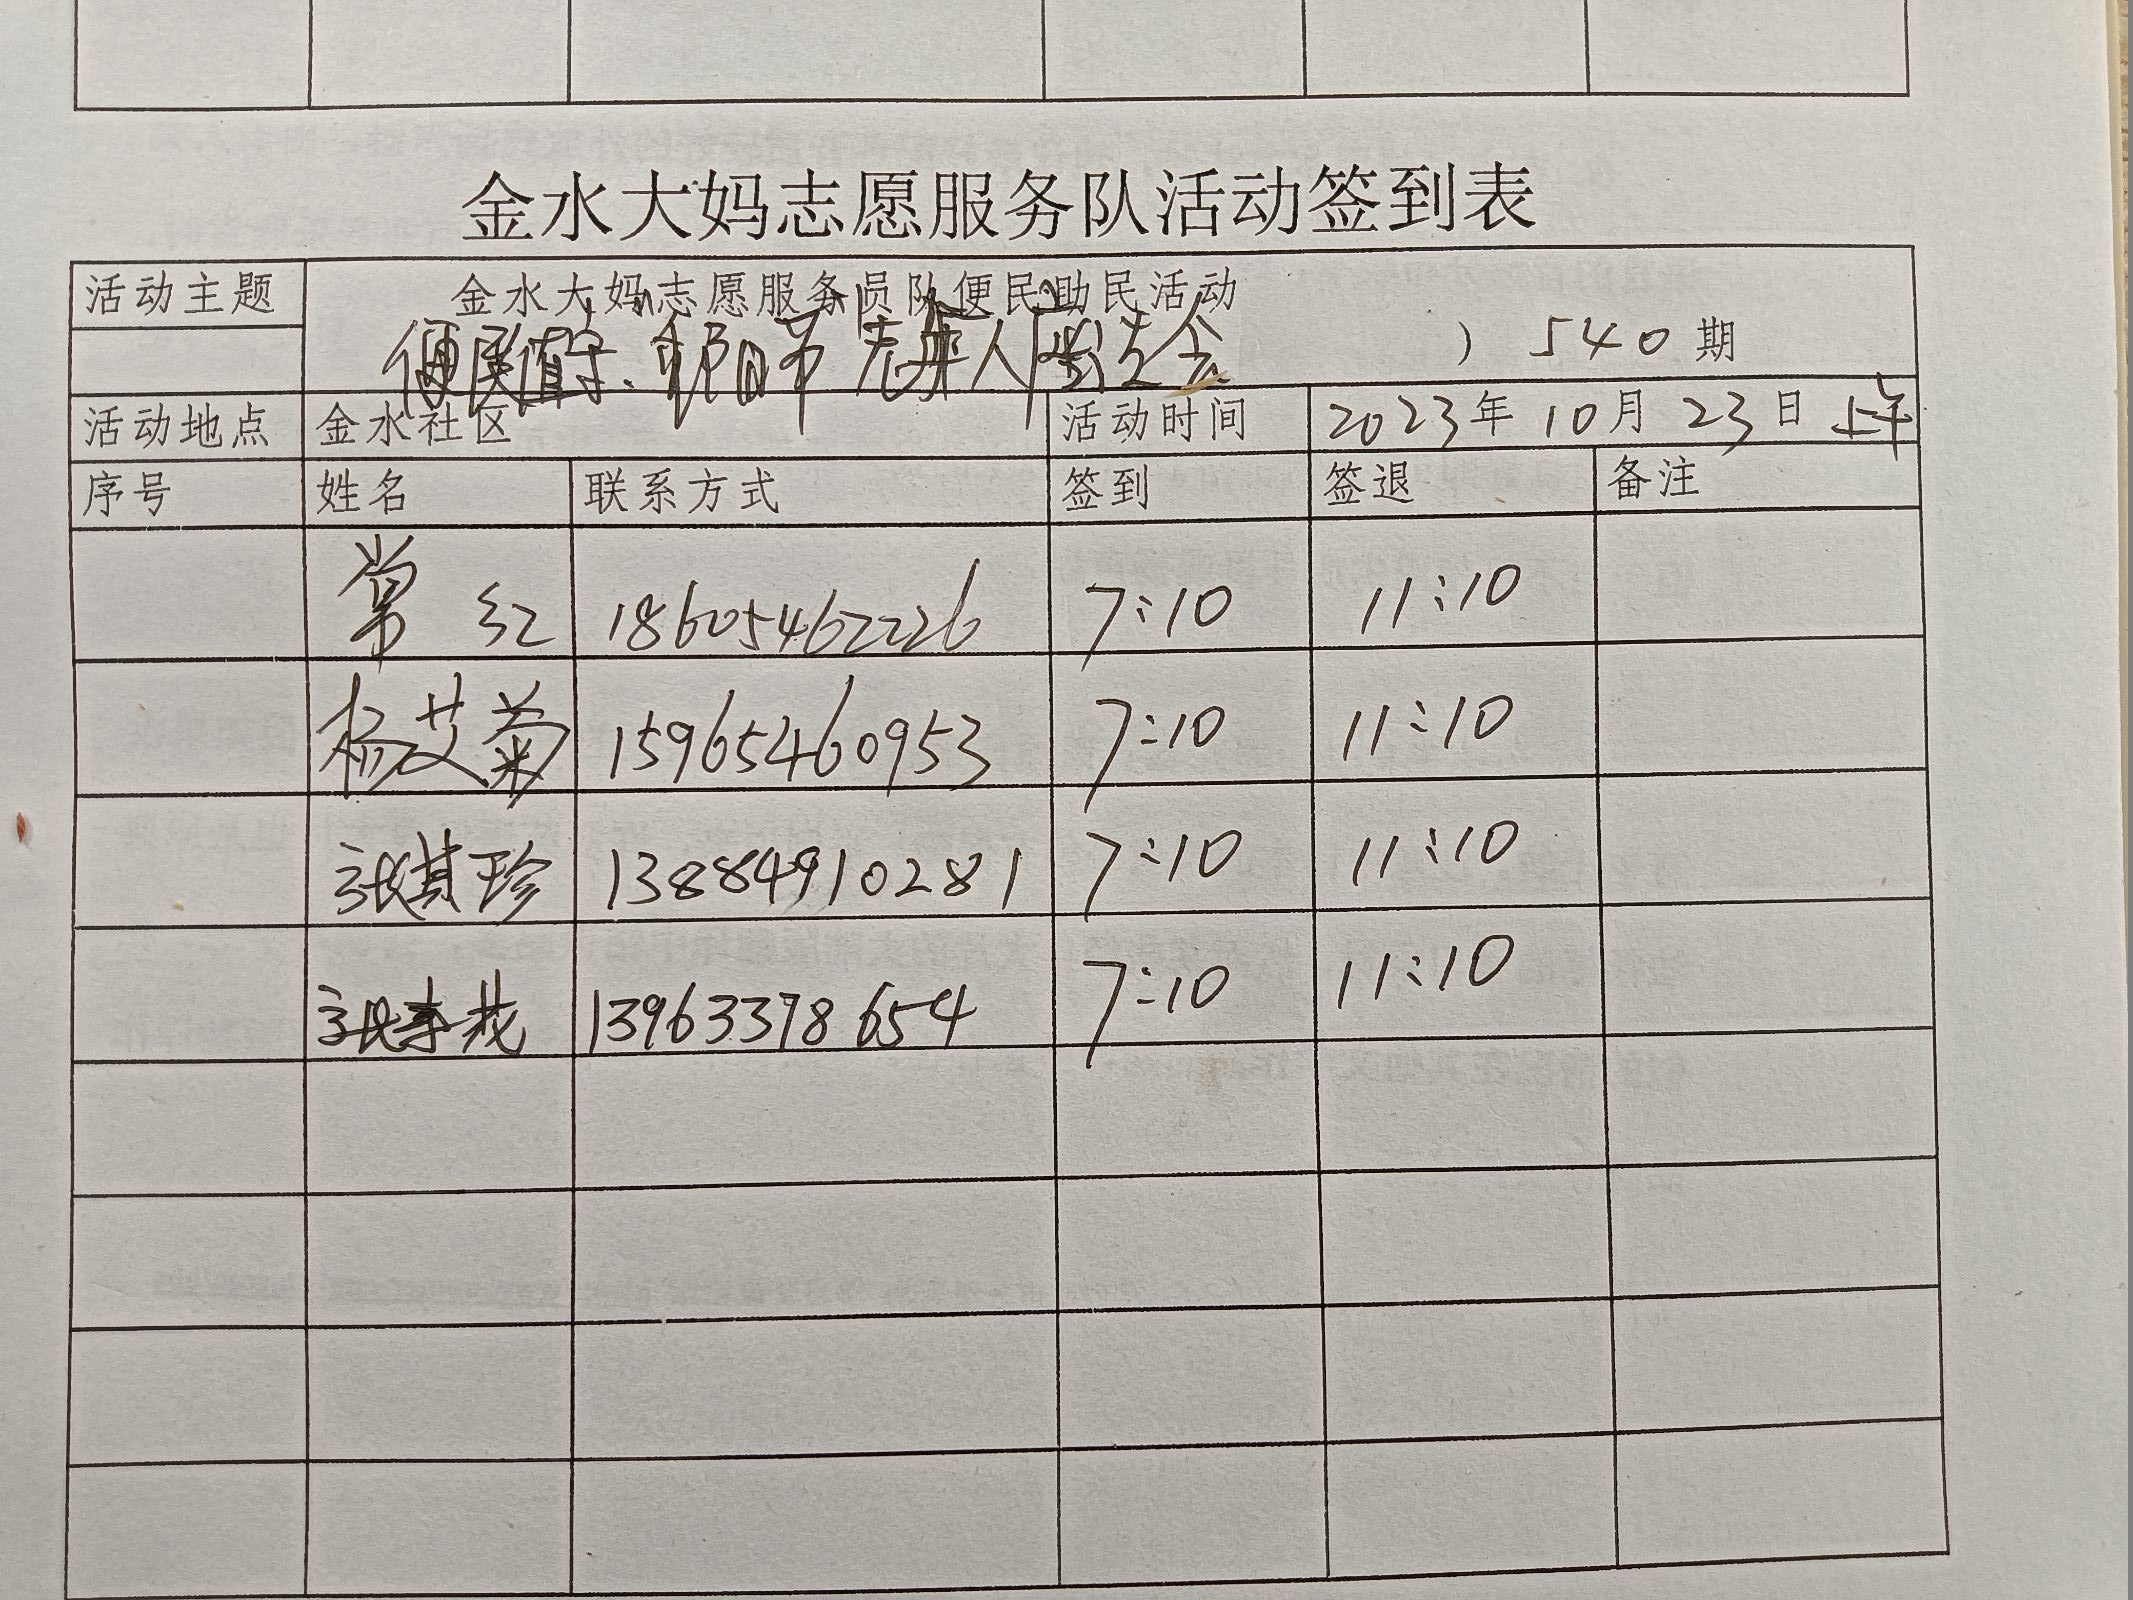 金水大妈志愿服务队活动签到表
活动主题 金水大妈志愿服务员队便民助民活动
便民值守、重阳节老年人座谈会 ) 540期
活动地点 金水社区 活动时间 2023年10月23日上午
序号 姓名 联系方式 签到 签退 备注
常红 18605462226 7:10 11:10
杨艾菊 15965460953 7:10 11:10
张其珍 13884910281 7:10 11:10
13963378654 7:10 11:10